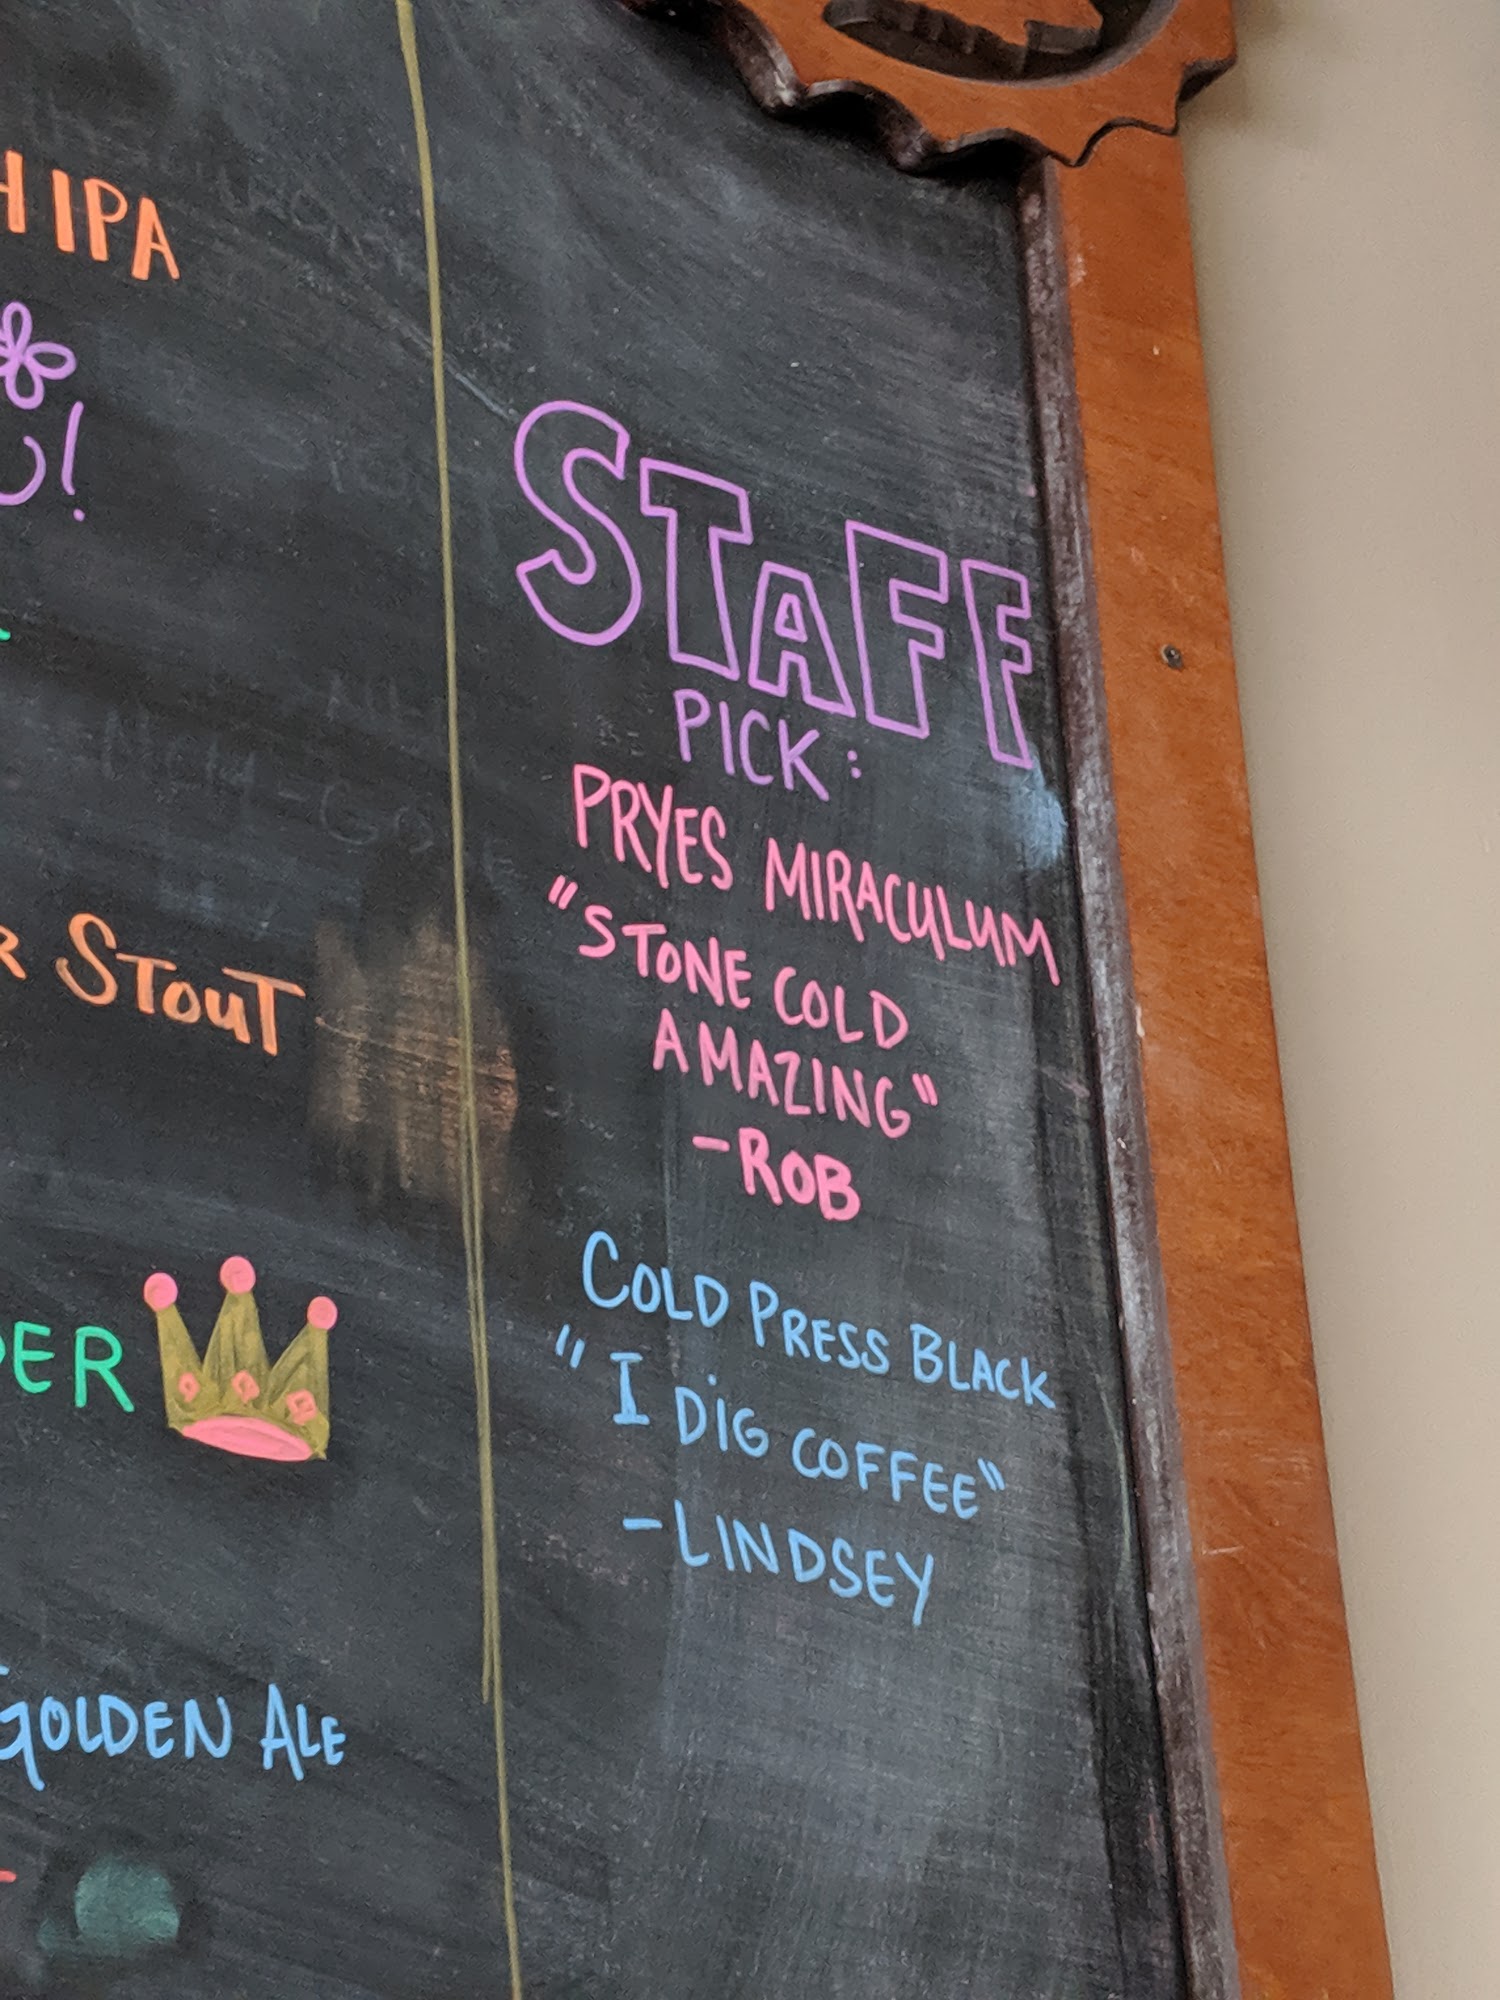 H IPA
!
STOUT
DER
GOLDEN ALE
STAFF
PICK:
PRYES MIRACULUM
"STONE COLD
AMAZING"
-ROB
COLD PRESS BLACK
"I DIG COFFEE"
-LINDSEY